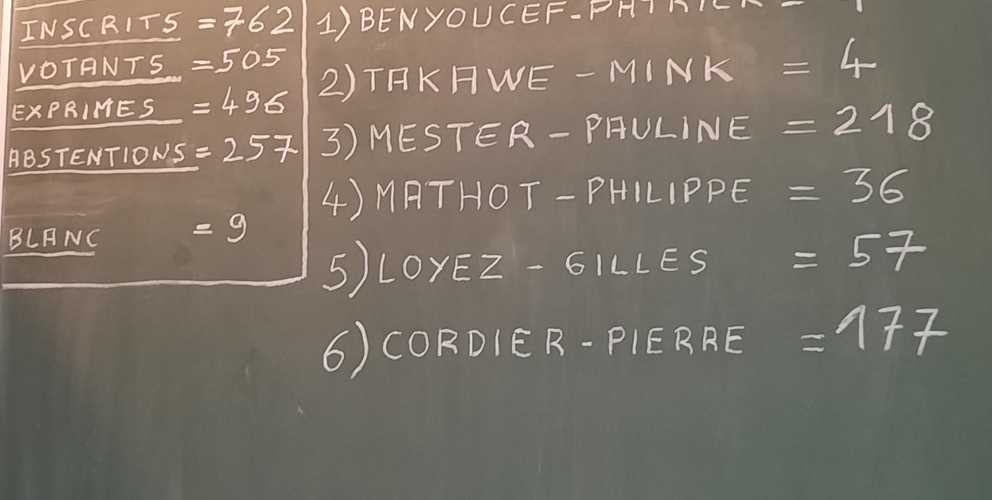 INSCRITS = 762
VOTANTS = 505
EXPRIMES = 496
ABSTENTIONS = 257
BLANC = 9
1) BENYOUCEF - PATRICK =
2) TAKAWE - MINK = 4
3) MESTER - PAULINE = 218
4) MATHOT - PHILIPPE = 36
5) LOYEZ - GILLES = 57
6) CORDIER - PIERRE = 177